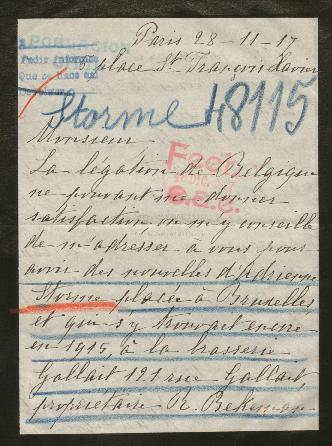 Paris 28-11-17
5 place St François Xavier
Pedir informe
Que se hace en
Storme 48115
Monsieur
La légation de Belgique
ne pouvant me donner
satisfaction, on m'y conseille
de m'adresser à vous pour
avoir des nouvelles d'Adrienne
Storme placée à Bruxelles,
et qui s'y trouvait encore
en 1915, à la brasserie
Gallait 121 rue Gallait,
propriétaire R.